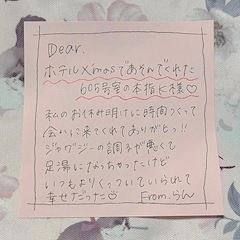 Dear.
ホテルX'masであそんでくれた
605号室の本指K様♡
私のお休み明けに時間つくって
会いに来てくれてありがとっ!!
ジャグジーの調子が悪くて
足湯になっちゃったけど
いつもよりくっついていられて
幸せだった♡
From.らん